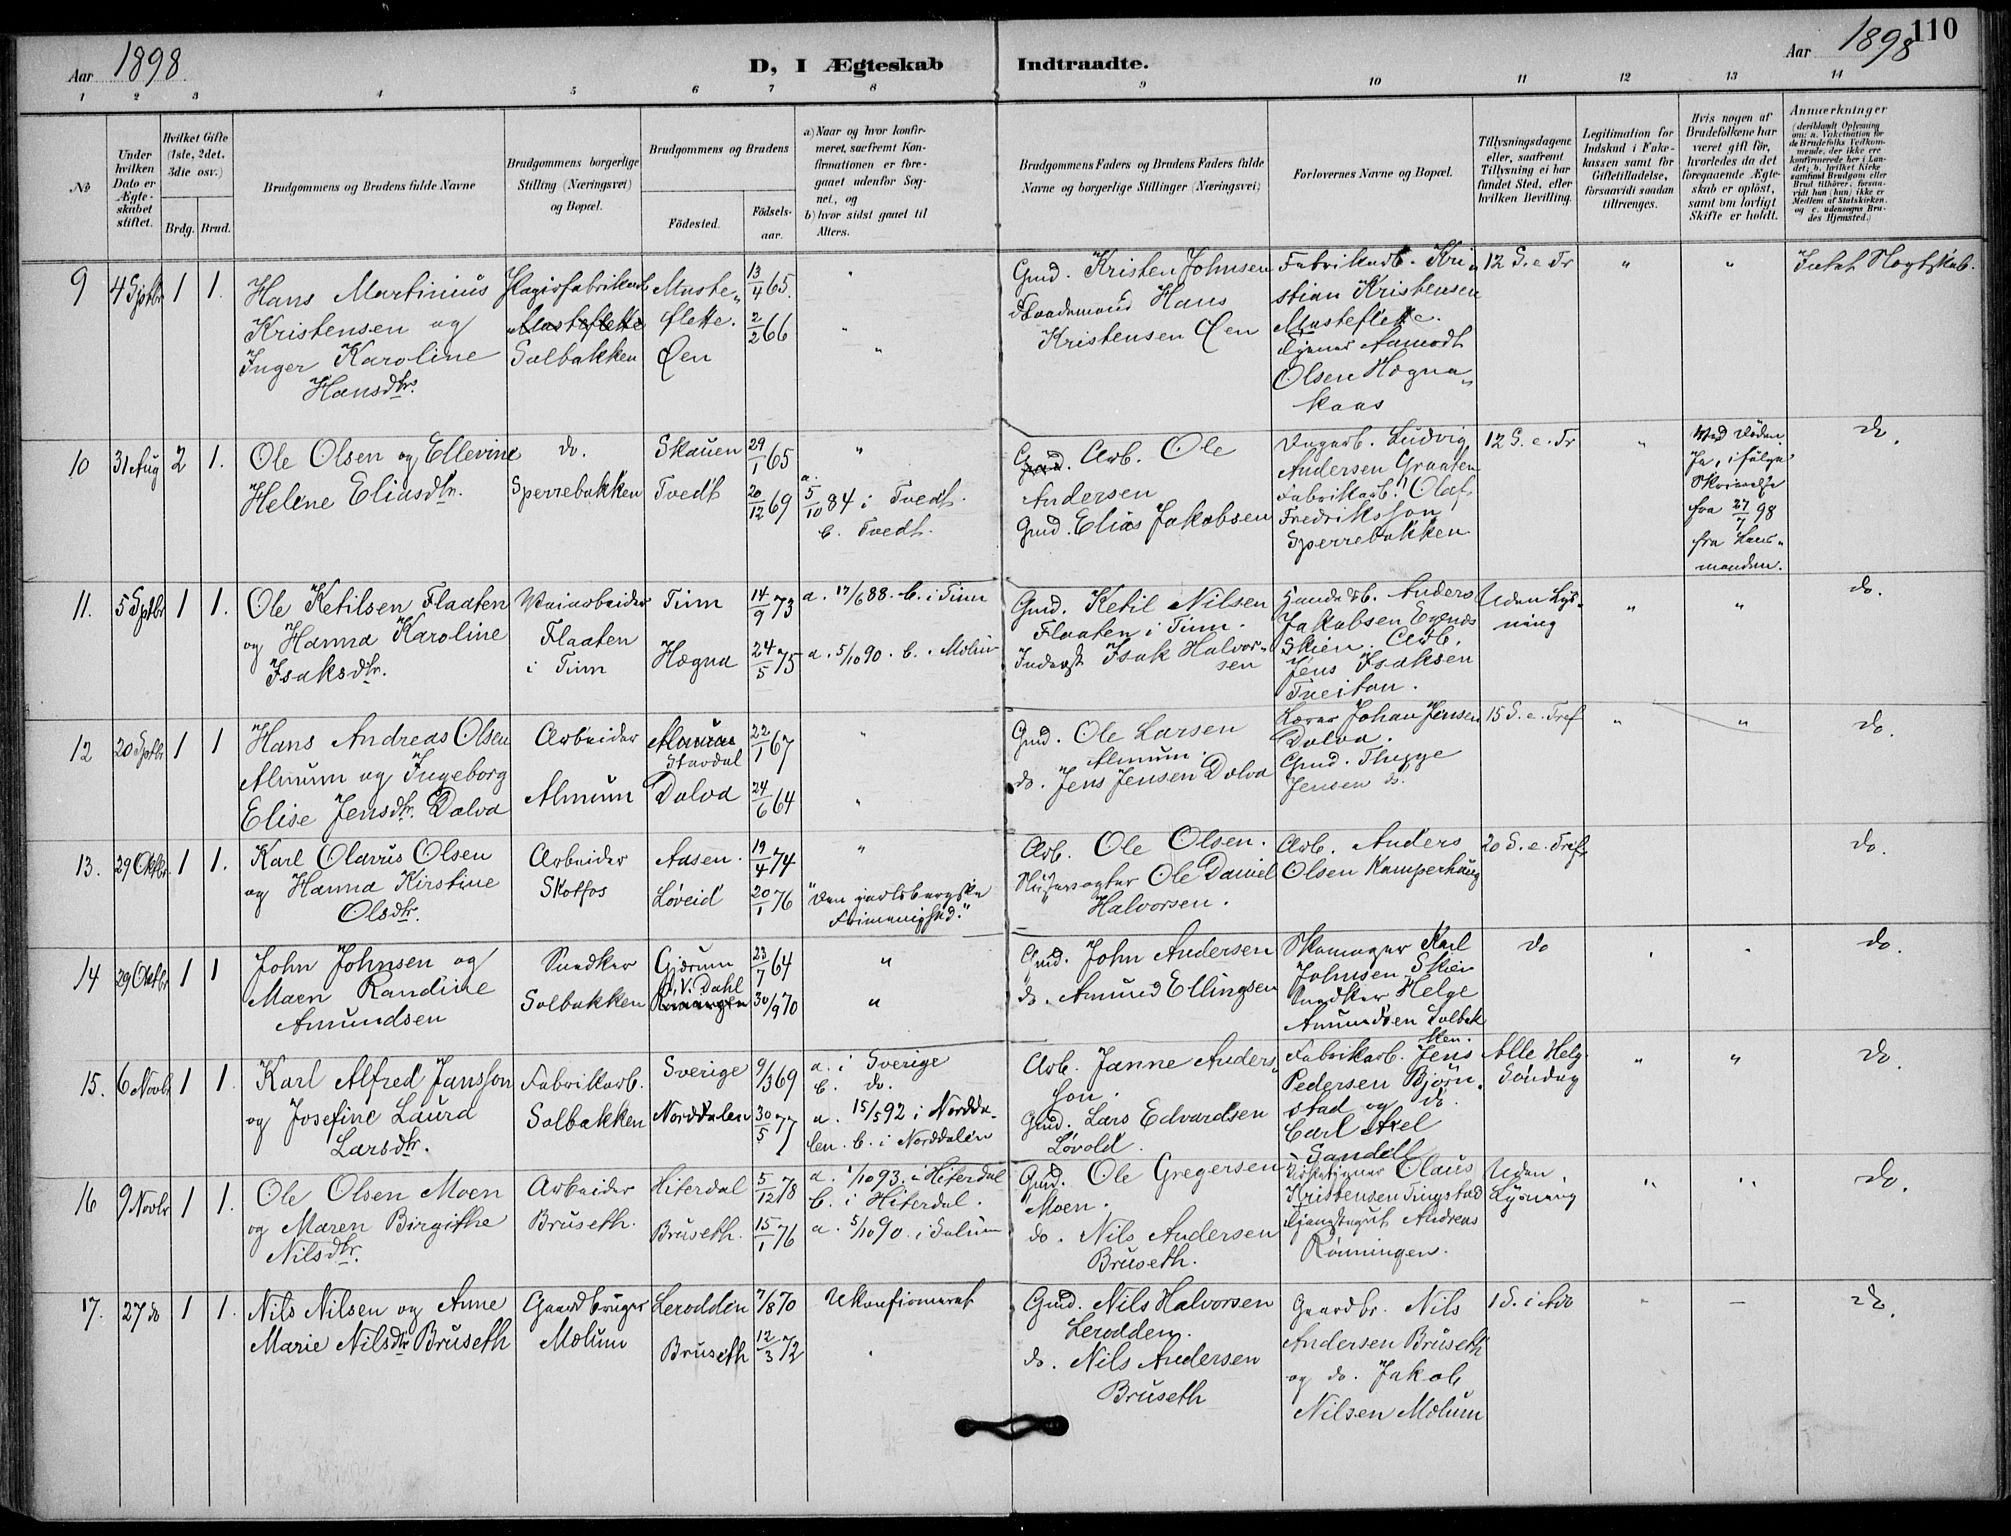 Aar 1898
D, I Ægteskab Indtraadte.
Aar 1898
110
1 2 3 4 5 6 7 8 9 10 11 12 13 14
No
Under hvilken Dato er Ægteskabet stiftet.
Hvilket Gifte (1ste, 2det, 3dte osv.)
Brdg. Brud.
Brudgommens og Brudens fulde Navne
Brudgommens borgerlige Stilling (Næringsvei) og Bopæl.
Brudgommens og Brudens
Födested. Födselsaar.
a) Naar og hvor konfirmeret, saafremt Konfirmationen er foregaaet udenfor Sognet, og
b) hvor sidst gaaet til Alters.
Brudgommens Faders og Brudens Faders fulde Navne og borgerlige Stillinger (Næringsvei)
Forlovernes Navne og Bopæl.
Tillysningsdagene eller, saafremt Tillysning ei har fundet Sted, efter hvilken Bevilling.
Legitimation for Indskud i Enkekassen samt for Giftetilladelse, forsaavidt saadan tiltrænges.
Hvis nogen af Brudefolkene har været gift för, hvorledes da det foregaaende Ægteskab er oplöst, samt om lovligt Skifte er holdt.
Anmærkninger (deriblandt Oplysning om: a. Vakcination for de Brudefolks Vedkommende, der ikke ere konfirmerede her i Landet; b. hvilket Kirkesamfund Brudgom eller Brud tilhörer, forsaavidt han (hun) ikke er Medlem af Statskirken, og c. udensogns Brudes Hjemsted.)
9 4 Sptbr 1 1.
Hans Martinius
Kristensen og
Inger Karoline
Hansdtr.
Masteflette
Solbakken
Masteflette.
Øen
13/4 65.
2/2 66
"
"
Gmd. Kristen Johnsen
Hans
Kristensen Øen
Fabrikarb. Kristian Kristensen
Masteflette.
Aamodt
Olsen Høgnakaas
12 S. e. Tr
"
"
Intet Slægtskab.
10 31 Aug 2 1.
Ole Olsen og Ellevine
Helene Eliasdtr.
do.
Sperrebakken
Skauen
Tvedt
29/1 65
20/12 69
"
a. 5/10 84 i Tvedt.
b. Tvedt.
Gmd. Arb. Ole
Andersen
Gmd. Elias Jakobsen
Dagarb. Ludvig
Andersen Graaten
Fabrikarb. Olaf
Fredriksson
Sperrebakken
12 S. e. Tr
"
Ved Døden.
Ja, ifølge
Skrivelse
fra 27/7 98
fra Lensmanden.
do.
11. 5 Sptbr 1 1.
Ole Ketilsen Flaaten
og Hanna Karoline
Isaksdtr.
Veiarbeider
Flaaten
i Tinn
Tinn
Høgna
14/9 73
24/5 75
a. 17/6 88. b. i Tinn
a. 5/10 90. b. i Melum
Gmd. Ketil Nilsen
Flaaten i Tinn.
Inderst Isak Halvorsen
Anders
Jakobsen
Skien. Arb.
Jens Isaksen
Treitan.
Uden Lysning
"
"
do.
12 20 Sptbr 1 1
Hans Andreas Olsen
Almum og Ingeborg
Elise Jensdtr. Dalva
Arbeider
Almum
Stavdal
Dalva
22/1 67
24/6 64
"
"
Gmd. Ole Larsen
Almum.
do. Jens Jensen Dalva
Lærer Johan Jensen
Dalva.
Gmd. Thygge
Jensen do.
15 S. e. Tref
"
"
do.
13. 29 Oktbr 1 1.
Karl Olavus Olsen
og Hanna Kirstine
Olsdtr.
Arbeider
Skotfos
Aasen.
Løveid
19/4 74
20/1 76
"
"Den jarlsbergske
Frimenighed."
Arb. Ole Olsen.
Slusevogter Ole Daniel
Halvorsen.
Arb. Anders
Olsen Kamperhaug
20 S. e. Tref.
do.
14 29 Oktbr 1 1
John Johnsen og
Maen Randine
Amundsen
Snedker
Solbakken
Gjerum
V. Dahl
23/7 64
30/9 70
"
"
Gmd. John Andersen
do. Amund Ellingsen
Skomager Karl
Johnsen Skien
Snedker Helge
Amundsen Solbakken.
do
do.
15. 6 Novbr 1 1.
Karl Alfred Jansson
og Josefine Laura
Larsdtr.
Fabrikarb.
Solbakken
Sverige
Norddalen
9/3 69
30/5 77
a. i Sverige
b. do.
a. 15/5 92 i Norddalen. b. i Norddalen
Arb. Janne Andersson.
Gmd. Lars Edvardsen
Løvold.
Fabrikarb. Jens
Pedersen Bjørnstad og do.
Carl Axel
Sandell
Alle Helg.
Søndag
"
"
do.
16 9 Novbr 1 1.
Ole Olsen Moen
og Maren Birgithe
Nilsdtr.
Arbeider
Bruseth.
Hiterdal
Bruseth.
5/12 78
15/1 76
a. 1/10 93. i Hiterdal
b. i Hiterdal.
a. 5/10 90. i Solum
Gmd. Ole Gregersen
Moen.
do. Nils Andersen
Bruseth.
Claus
Kristensen Tingstad
Andreas
Rønningen.
Uden
Lysning
"
"
do.
17. 27 do 1 1.
Nils Nilsen og Anne
Marie Nilsdtr Bruseth
Gaardbruger
Melum
Lerodden
Bruseth
7/8 70
12/3 72
Ukonfirmeret
Gmd. Nils Halvorsen
Lerodden.
do. Nils Andersen
Bruseth
Gaardbr. Nils
Andersen Bruseth
og do. Jakob
Nilsen Melum
1 S. i Adv
-
do.